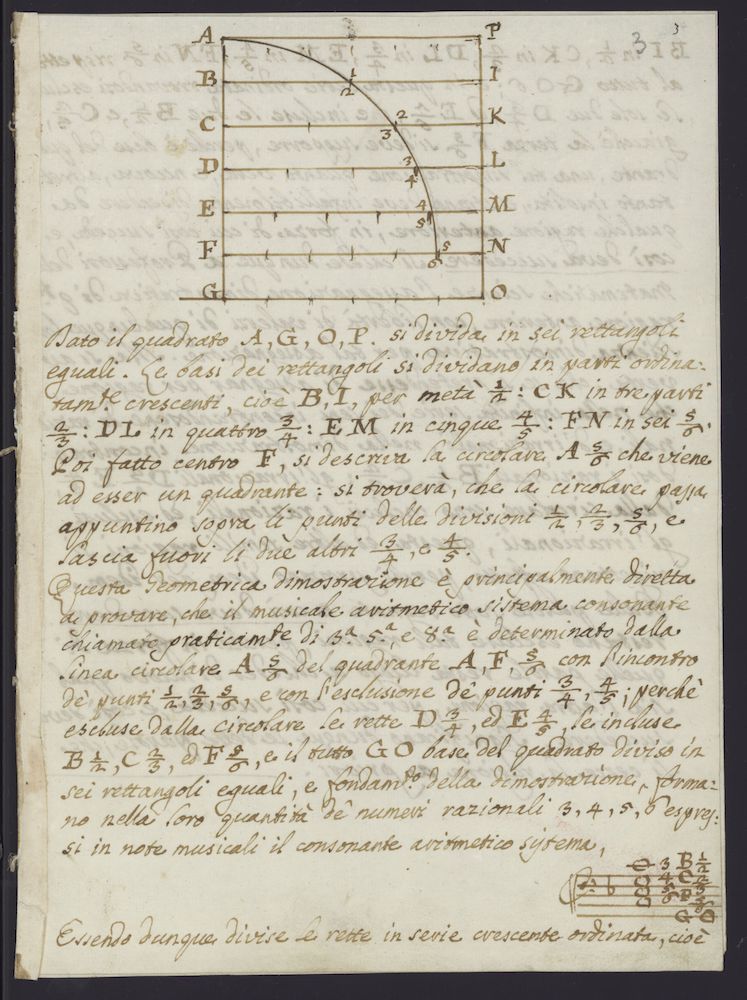 3
3
A P
5/6
B 1/2 I
C 2/3 K
D 3/4 L
E 4/5 M
F 5/6 N
G O
Dato il quadrato A, G, O, P. si divida in sei rettangoli
eguali. Le basi dei rettangoli si dividano in parti ordina-
tam.te crescenti, cioè B, I, per metà 1/2 : C K in tre parti
2/3 : D L in quattro 3/4 : E M in cinque 4/5 : F N in sei 5/6.
Poi fatto centro F, si descriva la circolare A 5/6 che viene
ad esser un quadrante: si troverà, che la circolare passa
appuntino sopra li punti delle divisioni 1/2, 2/3, 5/6, e
lascia fuori li due altri 3/4, e 4/5.
Questa Geometrica dimostrazione è principalmente diretta
a provare, che il musicale aritmetico sistema consonante
chiamato praticam.te di 3.a 5.a, e 8.a è determinato dalla
linea circolare A 5/6 del quadrante A, F, 5/6 con l'incontro
de' punti 1/2, 2/3, 5/6, e con l'esclusione de' punti 3/4, 4/5; perchè
escluse dalla circolare le rette D 3/4, ed E 4/5, le incluse
B 1/2, C 2/3, ed F 5/6, e il tutto G O base del quadrato diviso in
sei rettangoli eguali, e fondam.to della dimostrazione, forma-
no nella loro quantità de' numeri razionali 3, 4, 5, 6 espres-
si in note musicali il consonante aritmetico sistema,
3 B 1/2
4 C 2/3
5 F 5/6
6 G O
Essendo dunque divise le rette in serie crescente ordinata, cioè